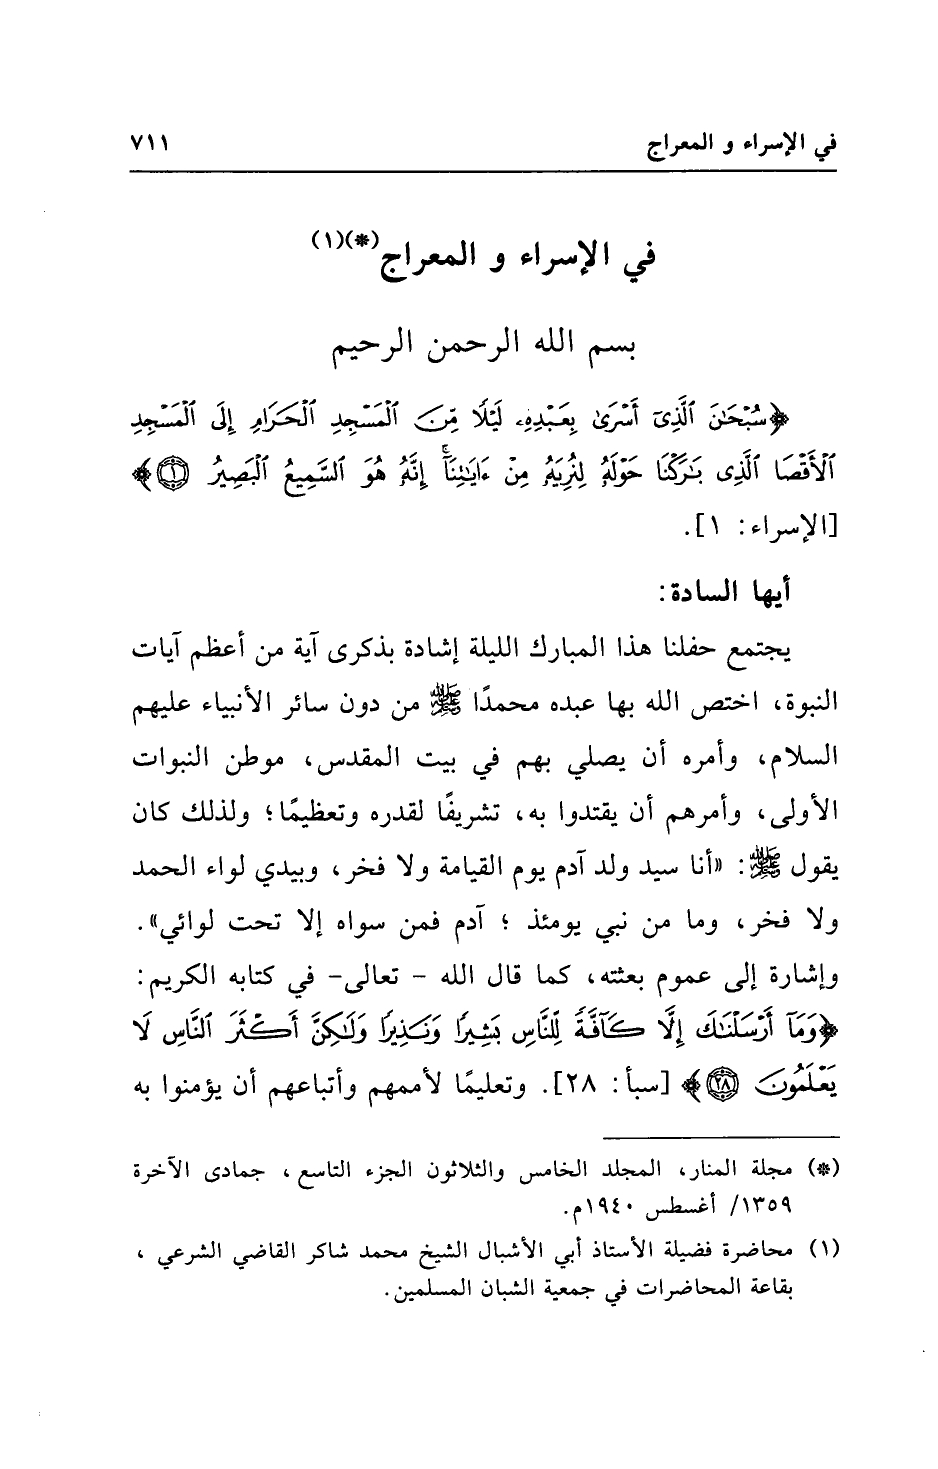 في الإسراء و المعراج ٧١١
في الإسراء و المعراج(*)(١)
بسم الله الرحمن الرحيم
﴿سُبْحَٰنَ ٱلَّذِىٓ أَسْرَىٰ بِعَبْدِهِۦ لَيْلًا مِّنَ ٱلْمَسْجِدِ ٱلْحَرَامِ إِلَى ٱلْمَسْجِدِ
ٱلْأَقْصَا ٱلَّذِى بَٰرَكْنَا حَوْلَهُۥ لِنُرِيَهُۥ مِنْ ءَايَٰتِنَآ ۚ إِنَّهُۥ هُوَ ٱلسَّمِيعُ ٱلْبَصِيرُ ١﴾
[الإسراء: ١].
أيها السادة:
يجتمع حفلنا هذا المبارك الليلة إشادة بذكرى آية من أعظم آيات
النبوة، اختص الله بها عبده محمدًا ﷺ من دون سائر الأنبياء عليهم
السلام، وأمره أن يصلي بهم في بيت المقدس، موطن النبوات
الأولى، وأمرهم أن يقتدوا به، تشريفًا لقدره وتعظيمًا؛ ولذلك كان
يقول ﷺ: «أنا سيد ولد آدم يوم القيامة ولا فخر، وبيدي لواء الحمد
ولا فخر، وما من نبي يومئذ ؛ آدم فمن سواه إلا تحت لوائي».
وإشارة إلى عموم بعثته، كما قال الله - تعالى- في كتابه الكريم:
﴿وَمَآ أَرْسَلْنَٰكَ إِلَّا كَآفَّةً لِّلنَّاسِ بَشِيرًا وَنَذِيرًا وَلَٰكِنَّ أَكْثَرَ ٱلنَّاسِ لَا
يَعْلَمُونَ ٢٨﴾ [سبأ: ٢٨]. وتعليمًا لأممهم وأتباعهم أن يؤمنوا به
(*) مجلة المنار، المجلد الخامس والثلاثون الجزء التاسع، جمادى الآخرة
١٣٥٩/ أغسطس ١٩٤٠م.
(١) محاضرة فضيلة الأستاذ أبي الأشبال الشيخ محمد شاكر القاضي الشرعي ،
بقاعة المحاضرات في جمعية الشبان المسلمين.